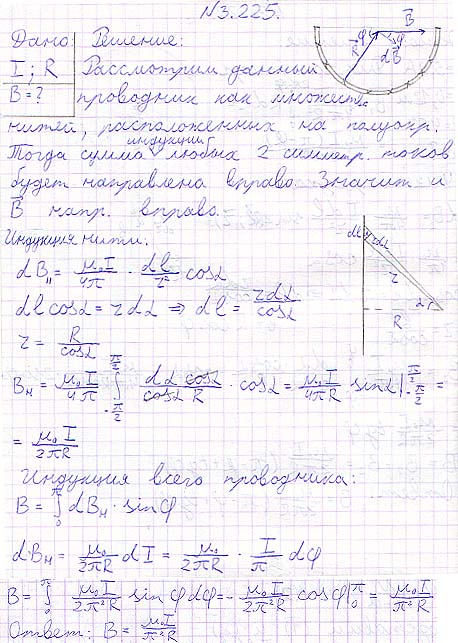 №3.225.
Дано: Решение:
I ; R Рассмотрим данный
B = ? проводник как множество
нитей, расположенных на полуокр.
Тогда сумма индукций любых 2 симметр. токов
будет направлена вправо. Значит и
B⃗ напр. вправо.
Индукция нити:
dB₁₁ = μ₀I/4π · dl/r² cosα
dl cosα = r dα ⇒ dl = r dα/cosα
r = R/cosα
Bн = μ₀I/4π ∫_{-π/2}^{π/2} dα cosα/cosα R · cosα = μ₀I/4πR sinα|_{-π/2}^{π/2} =
= μ₀I/2πR
Индукция всего проводника:
B = ∫_0^π dBн · sinφ
dBн = μ₀/2πR dI = μ₀/2πR · I/π dφ
B = ∫_0^π μ₀I/2π²R sinφ dφ = - μ₀I/2π²R cosφ|_0^π = μ₀I/π²R
Ответ: B = μ₀I/π²R
B⃗
R⃗ φ φ
dB⃗
dl α dα
r
dα
R